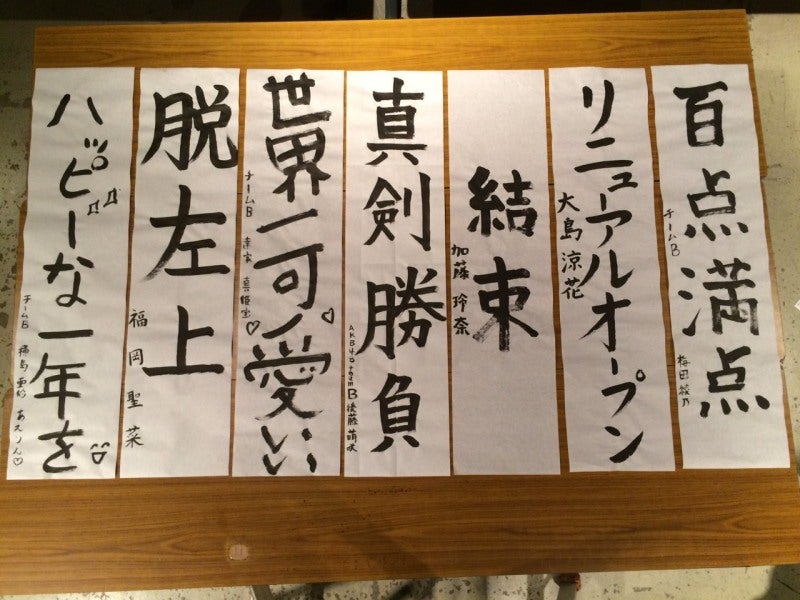 百点満点
チームB 梅田綾乃
リニューアルオープン
大島涼花
結束
加藤玲奈
真剣勝負
AKB48 teamB 後藤萌咲
世界一可愛い♡
チームB 達家真姫宝♡
脱左上
福岡聖菜
ハッピーな一年を
チームB 横島亜衿 あえりん♡